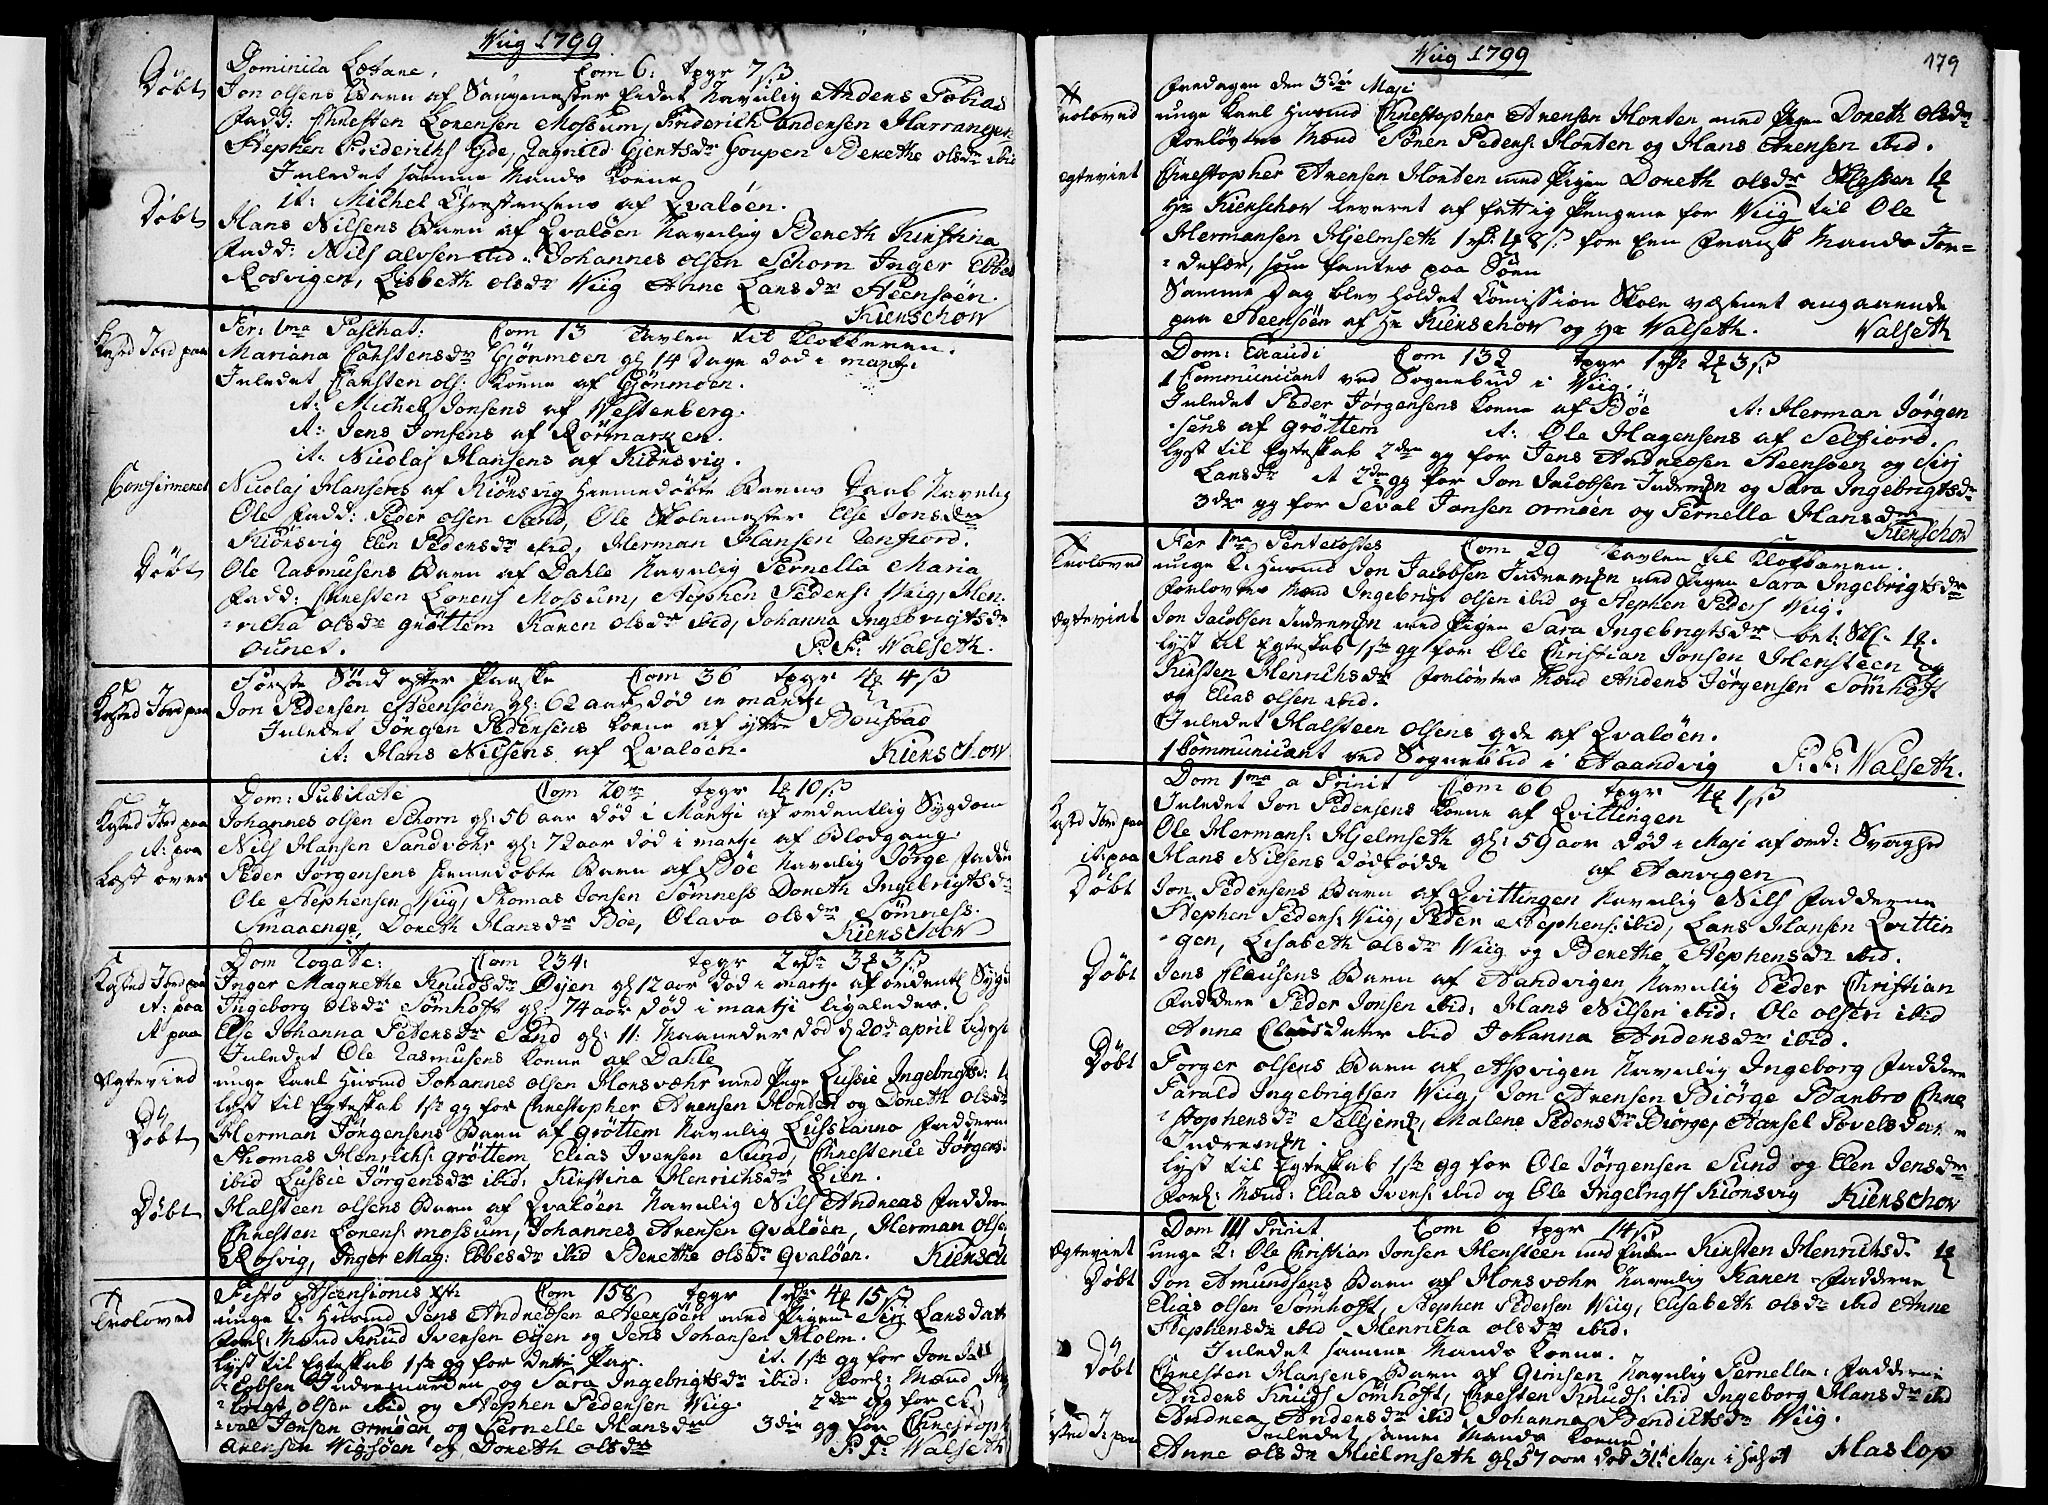 Wiig 1799
Dominica Lætare, Com 6: tpgr 7 ß
Døbt Jon olsens Barn af Saugmester Eidet Navnlig Anders Tobias
Fadd: Christen Lorensen Mossum, Friderich Andersen Harrangen
Stephen Friderichs Eyde, Ragnild Gjertsdr Goupen Berethe olsdr ibid
Inledet samme Mands Kone
it: Michel Christensens af Qvaløen.
Døbt Hans Nilsens Barn af Qvaløen Navnlig Bereth Kirstina
Fadd: Nils alvsen ibid. Johannes olsen Schorn Inger Ebbes
Rosvigen, Lisbeth olsdr Wiig Anne Larsdr Steensøen.
Kierschow
Fer: 1ma Paschat: Com 13 Tavlen til Klokkeren.
Kasted Jord paa Mariana Carstensdr Gjørmoen gl 14 Dage død i martj.
Inledet Carsten ols: Kone af Gjørmoen.
it: Michel Jonsens af Westenberg.
it: Jens Jonsens af Rørmarken.
it: Nicolaj Hansens af Kiønsvig.
Confirmeret Nicolaj Hansens af Kiønsvig Hiemedøbte Barns Daab Navnlig
Ole Fadd: Peder olsen Sand, Ole Skolemester Else Jonsdr
Kiønsvig Elen Pedersdr ibid, Herman Hansen Terfiord.
Døbt Ole Rasmusens Barn af Dahle Navnlig Pernella Maria
Fadd: Christen Lorens Mossum, Stephen Peders: Wiig, Hen-
richa olsdr Grøttem Karen olsdr ibid, Johanna Ingebrigtsdr
ouret. P: F: Walseth.
Første Sønd efter Paaske Com 36 tpgr 4 ß
Kasted Jord paa Jon Pedersen Steensøen gl: 62 aar død in martj
Inledet Jørgen Pedersens Kone af yttre
it: Hans Nilsens af Qvaløen. Kierschow
Dom: Jubilate Com 20 tpgr 10 ß
Kasted Jord paa Johannes olsen Schorn gl: 56 aar død i Martj af ordentlig Sygdom
it: paa Nils Hansen Sandvæhr gl: 72 aar død i martj af Blodgang.
Læst over Peder Jørgensens hiemedøbte Barn af Bøe Navnlig Jørge Fadde
Ole Stephensen Wiig, Thomas Jonsen Sømness Doreth Ingebrigtsdr
Smaaenge, Doreth Hansdr Bøe, Olava olsdr Sømness.
Kierschow
Dom Rogate: Com 234: tpgr 2 3 3 ß
Kasted Jord paa Inger Magrethe Knudsdr Øyen gl 12 aar død i martj af ordentl Sygd
it: paa Ingeborg olsdr Sømhofft gl: 74 aar død i martj ligeledes.
it paa Else Johanna Petersdr Sand gl: 11: Maaneder død d 20de april
Inledet Ole Rasmusens Kone af Dahle
Ægtevied unge Karl Husmd Johannes olsen Horsvæhr med Pige Lussie Ingebrigtsd:
Lyst til Egteskab 1ste gg for Christopher Arensen Horten og Doreth olsdr
Døbt Herman Jørgensens Barn af Grøttem Navnlig Lussianna Faddere
Thomas Henrichs: Grøttem Elias Iversen Sund, Christence Jørgens
ibid Lussie Jørgensdr ibid: Kirstina Henrichsdr Lien.
Døbt Halsteen olsens Barn af Qvaløen Navnlig Nils Andreas Faddere
Christen Lorens: mossum, Johannes Arensen Qvaløen, Herman olsen
Rosvig, Inger Mag: Ebbesdr ibid Berethe olsdr Qvaløen. Kierschow
Festo Ascensionis xsti Com 158 tpgr 1 4 15 ß
Troloved unge K: Husmd Jens Andreasen Steensøen med Pigen Siri Larsdatr
Forl: Mænd Knud Iversen Øyen og Jens Johansen Holm.
Lyst til Egteskab 1ste gg for dette Par. it: 1ste gg for Jon Ja-
cobsen Indremarken og Sara Ingebrigtsdr ibid: Forl: Mænd
olsen ibid og Stephen Pedersen Wiig. 2den gg for
val Jonsen ormøen og Pernelle Hansdr 3die gg for Christoph
Arensen Wigsøen og Doreth olsdr P: F: Walseth
Wiig 1799 179
Fredagen den 3die Maji
Troloved unge Karl Husmd Christopher Arensen Horten med Pigen Doreth olsdr
Forløvtes Mænd Søren Peders: Horten og Hans Arensen ibid.
Ægteviet Christopher Arensen Horten med Pigen Doreth olsdr
Hr Kierschow leveret af fattig Pengene for Wiig til Ole
Hermansen Hjelmseth for Een Fransk Mands Jor-
defær, som fantes paa Søen
Samme Dag blev holdet Comission Skole væsnet angaaende
paa Steensøen af Hr Kierschow og Hr Walseth. Walseth
Dom: Exaudi Com 132 tpgr 1 2 3 ß
1 Communicant ved Sognebud i Wiig.
Inledet Peder Jørgensens Kone af Bøe it: Herman Jørgen
sens af Grøttem it: Ole Hagensens af Selfiord.
Lyst til Egteskab 2den gg for Jens Andreasen Steensøen og Sirj
Larsdr it 2den gg for Jon Jacobsen og Sara Ingebrigtsdr
3die gg for Seval Jonsen ormøen og Pernella Hansdr
Kierschow
Fer 1ma Pentecostes Com 29 Tavlen til Klokkeren.
Troloved unge K: Husmd Jon Jacobsen med Pigen Sara Ingebrigtsdr
Forlovtes Mænd Ingebrigt olsen ibid og Stephen Peders Wiig.
Ægteviet Jon Jacobsen med Pigen Sara Ingebrigtsdr
Lyst til Egteskab 1ste gg for Ole Christian Jonsen Hersteen og
Kirsten Henrichsdr Forløvtes Mænd Anders Jørgensen Sømhoft
og Elias olsen ibid.
Inledet Halsteen olsens de af Qvaløen.
1 Communicant ved Sognebud i Aaandvig P: F: Walseth.
Dom 1ma a Trinit Com 66 tpgr 4 1 ß
Inledet Jon Pedersens Kone af Qvittingen
Kasted Jord paa Ole Hermans: Hjelmseth gl: 59 aar Død i Maji af ord: Svaghed
it: paa Hans Nilsens Dødfødde af Aanvigen
Døbt Jon Pedersens Barn af Qvittingen Navnlig Nils Fadderne
Stephen Peders: Wiig, Peder Stephens: ibid, Lars Hansen Qvittin
gen, Lisabeth olsdr Wiig og Berethe Stephensdr ibid.
Døbt Jens Clausens Barn af Aandvigen Navnlig Peder Christian
Faddere Peder Jonsen ibid: Hans Nilsen ibid: Ole olsen ibid
Anne Clausdater ibid Johanna Andersdr ibid.
Døbt Torger olsens Barn af Aspvigen Navnlig Ingeborg Faddere
Farald Ingebrigtsen Wiig, Jon Arensen Biørge Bambro Chri
stophersdr, Malene Pedersdr Biørge, Aansel Povelsdat
Lyst til Egteskab 1ste gg for Ole Jørgensen Sund og Elen Jensdr
Forl: Mænd: Elias Ivers: ibid og Ole Ingebrigts Kiønsvig Kierschow
Dom III Trinit Com 6 tpgr 14 ß
Ægteviet unge K: Ole Christian Jonsen Hersteen med Kirsten Henrichsd.
Døbt Jon Amundsens Barn af Horsvæhr Navnlig Karen Fadderne
Elias olsen Sømhofft, Stephen Pedersen Wiig, Elisabeth olsdr ibid Anne
Stephensdr ibid Henricha olsdr ibid.
Inledet samme Mands Kone.
Døbt Christen Hansens Barn af Gimsen Navnlig Pernella: Fadderne
Anders Knuds Sømhoft, Christen Knuds ibid Ingeborg Hansdr ibid
Andrea Andersdr ibid Johanna Bendictsdr Wiig.
Inledet samme Mands Kone
Kasted J: paa Anne olsdr Hielmseth gl 57 aar død 31te Maji Haslop